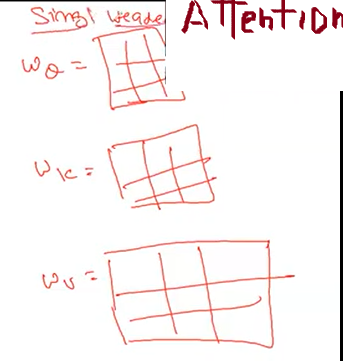 Singl Header Attention
WQ =
WK =
Wv =